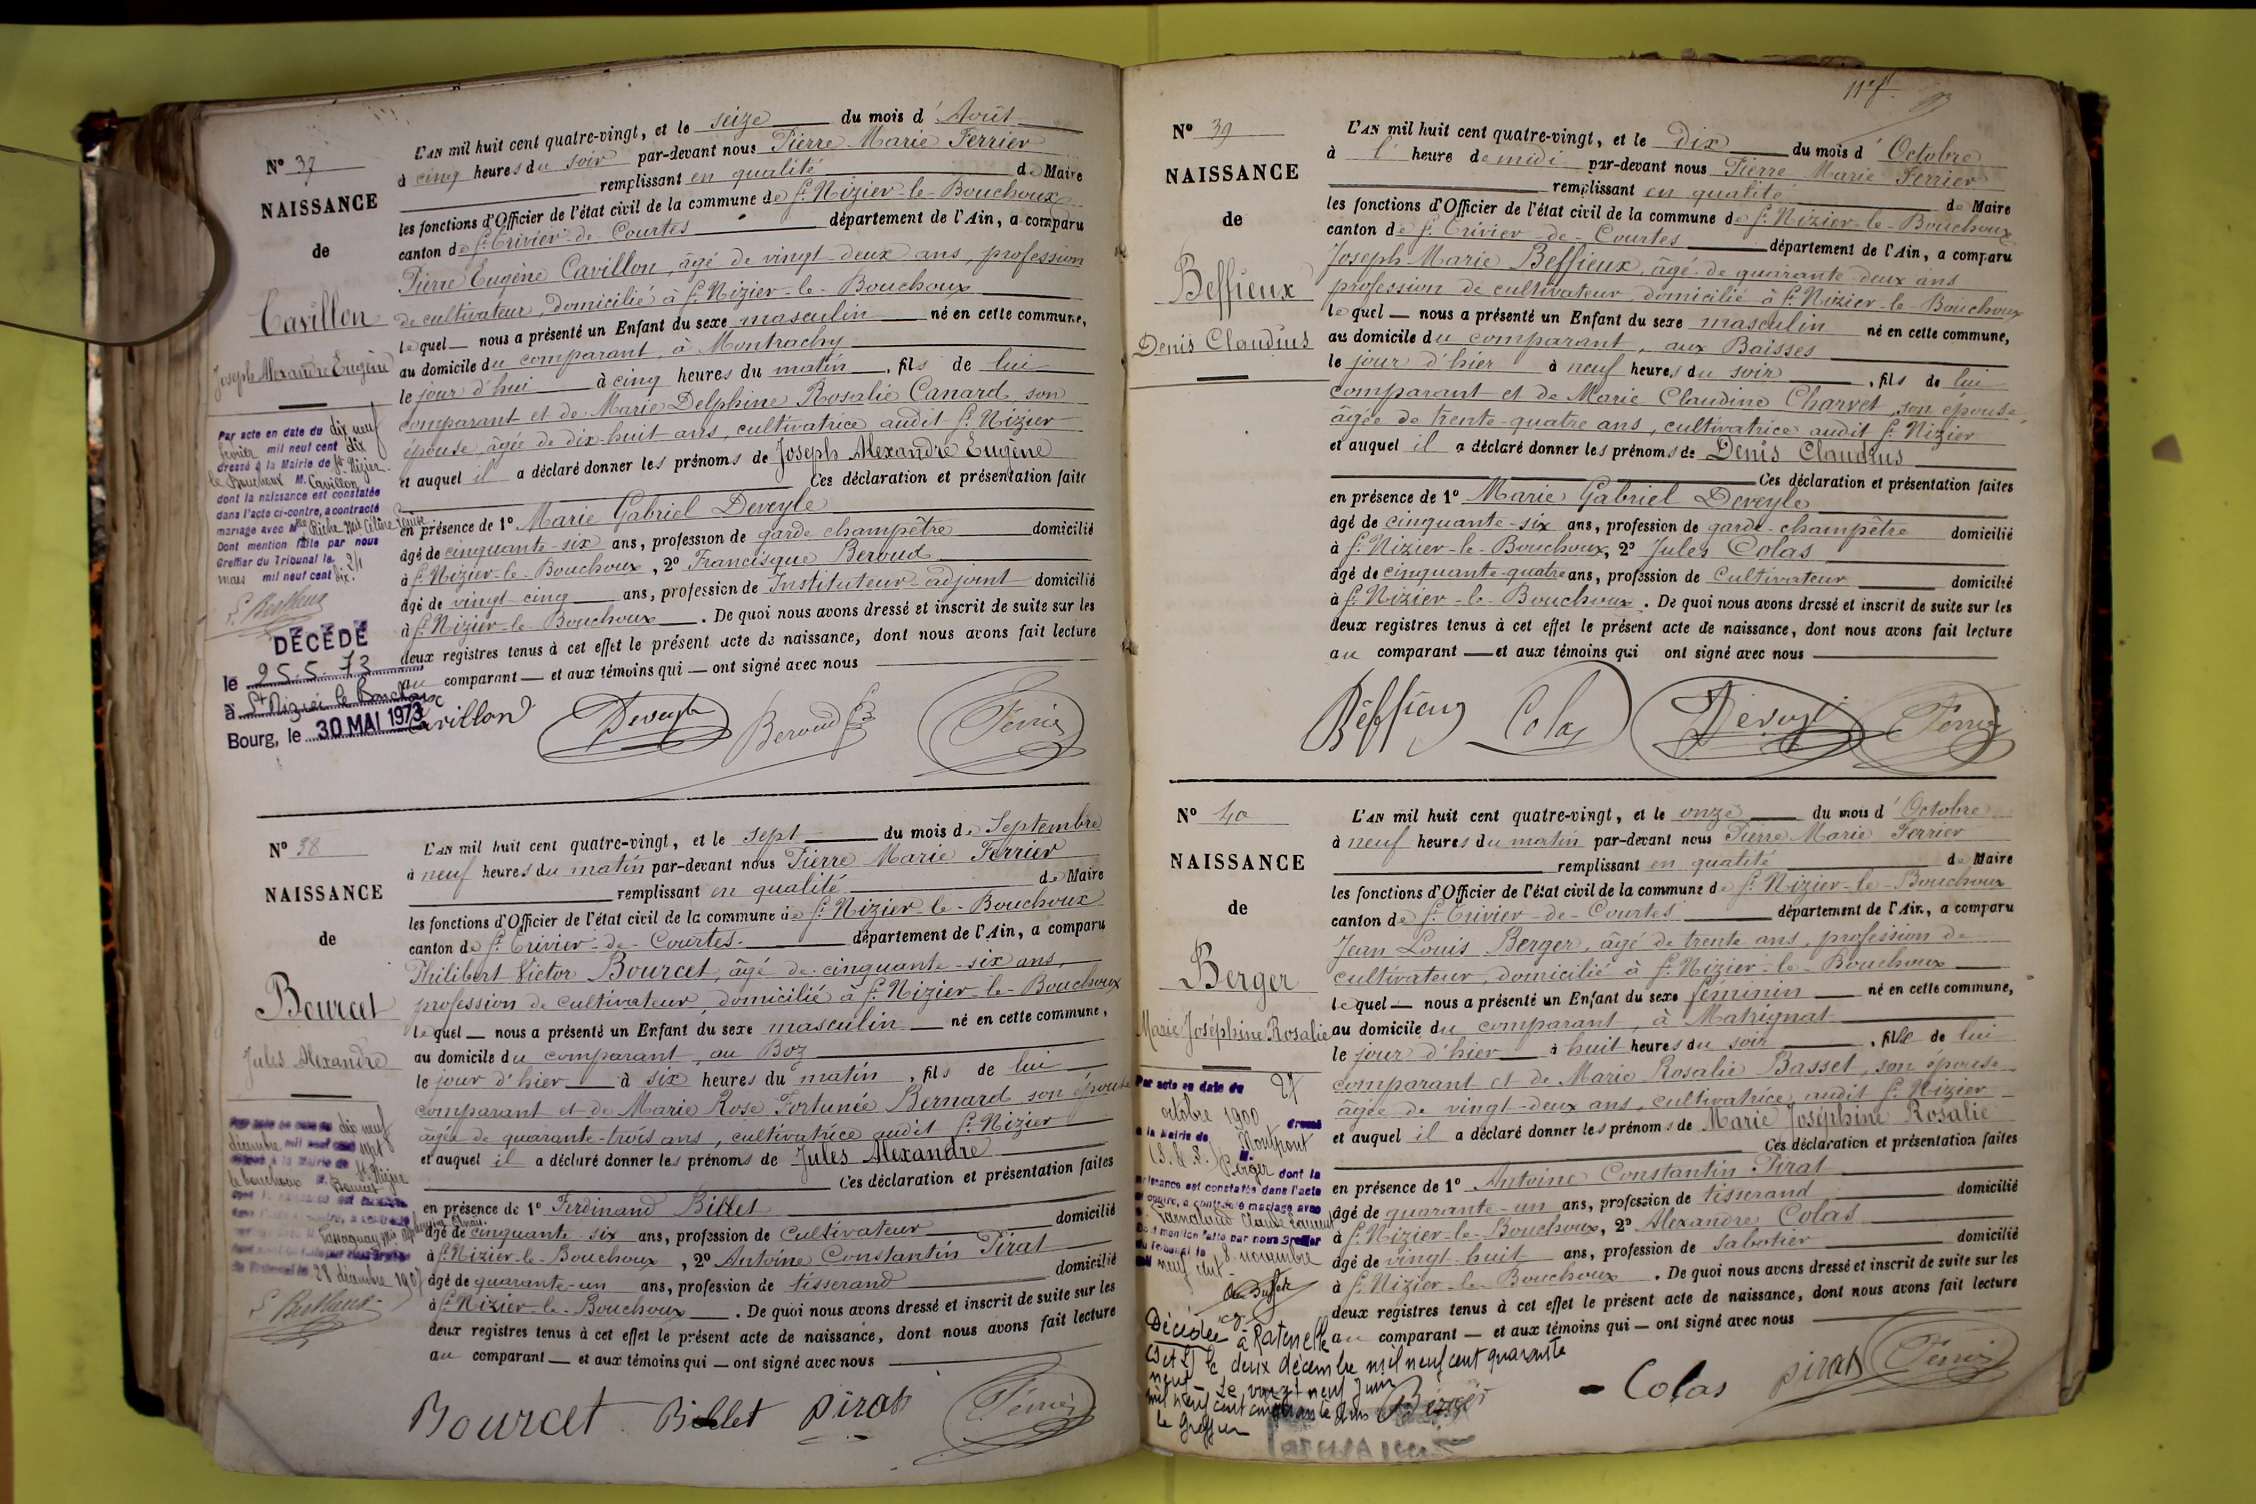 N° 37
NAISSANCE
de
Cavillon
Joseph Alexandre Eugène
Par acte en date du dix neuf
février mil neuf cent dix
dressé à la Mairie de St Nizier
le Bouchoux M. Cavillon
dont la naissance est constatée
dans l'acte ci-contre, a contracté
mariage avec Mlle Riche
Dont mention faite par nous
Greffier du Tribunal le 2/1
mars mil neuf cent dix.
DÉCÉDÉ
le 25.5.73
à St Nizier le Bouchoux
Bourg, le 30 MAI 1973
L'AN mil huit cent quatre-vingt, et le seize du mois d'Août
à cinq heures du soir par-devant nous Pierre Marie Ferrier
remplissant en qualité de Maire
les fonctions d'Officier de l'état civil de la commune de St. Nizier-le-Bouchoux
canton de St. Trivier-de-Courtes département de l'Ain, a comparu
Pierre Eugène Cavillon, âgé de vingt-deux ans, profession
de cultivateur, domicilié à St. Nizier-le-Bouchoux
lequel — nous a présenté un Enfant du sexe masculin né en cette commune,
au domicile du comparant, à Montrachy
le jour d'hui à cinq heures du matin, fils de lui
comparant et de Marie Delphine Rosalie Canard, son
épouse, âgée de dix-huit ans, cultivatrice audit St. Nizier
et auquel il a déclaré donner les prénoms de Joseph Alexandre Eugène
Ces déclaration et présentation faites
en présence de 1° Marie Gabriel Deveyle
âgé de cinquante-six ans, profession de garde champêtre domicilié
à St. Nizier-le-Bouchoux, 2° Francisque Beroud
âgé de vingt-cinq ans, profession de Instituteur-adjoint domicilié
à St. Nizier-le-Bouchoux. De quoi nous avons dressé et inscrit de suite sur les
deux registres tenus à cet effet le présent acte de naissance, dont nous avons fait lecture
au comparant — et aux témoins qui — ont signé avec nous
Cavillon Deveyle Beroud Ferrier
N° 38
NAISSANCE
de
Bourcet
Jules Alexandre
Par acte en date du dix neuf
décembre mil neuf cent sept
dressé à la Mairie de St Nizier
le bouchoux M. Bourcet
28 décembre 1907
L'AN mil huit cent quatre-vingt, et le sept du mois de Septembre
à neuf heures du matin par-devant nous Pierre Marie Ferrier
remplissant en qualité de Maire
les fonctions d'Officier de l'état civil de la commune de St. Nizier-le-Bouchoux
canton de St. Trivier-de-Courtes. département de l'Ain, a comparu
Philibert Victor Bourcet, âgé de cinquante-six ans,
profession de cultivateur, domicilié à St. Nizier-le-Bouchoux
lequel — nous a présenté un Enfant du sexe masculin — né en cette commune,
au domicile du comparant, au Boz
le jour d'hier à six heures du matin, fils de lui
comparant et de Marie Rose Fortunée Bernard son épouse
âgée de quarante-trois ans, cultivatrice audit St. Nizier
et auquel il a déclaré donner les prénoms de Jules Alexandre
Ces déclaration et présentation faites
en présence de 1° Ferdinand Billet
âgé de cinquante-six ans, profession de Cultivateur domicilié
à St. Nizier-le-Bouchoux, 2° Antoine Constantin Pirat
âgé de quarante-un ans, profession de tisserand domicilié
à St. Nizier-le-Bouchoux. De quoi nous avons dressé et inscrit de suite sur les
deux registres tenus à cet effet le présent acte de naissance, dont nous avons fait lecture
au comparant — et aux témoins qui — ont signé avec nous
Bourcet Billet Pirat Ferrier
N° 39
NAISSANCE
de
Beffieux
Denis Claudius
L'AN mil huit cent quatre-vingt, et le dix du mois d'Octobre
à l'heure de midi par-devant nous Pierre Marie Ferrier
remplissant en qualité de Maire
les fonctions d'Officier de l'état civil de la commune de St. Nizier-le-Bouchoux
canton de St. Trivier-de-Courtes département de l'Ain, a comparu
Joseph-Marie Beffieux, âgé de quarante-deux ans
profession de cultivateur domicilié à St. Nizier-le-Bouchoux
lequel — nous a présenté un Enfant du sexe masculin né en cette commune,
au domicile du comparant, aux Baisses
le jour d'hier à neuf heures du soir, fils de lui
comparant et de Marie Claudine Charvet, son épouse,
âgée de trente-quatre ans, cultivatrice audit St. Nizier
et auquel il a déclaré donner les prénoms de Denis Claudius
Ces déclaration et présentation faites
en présence de 1° Marie Gabriel Deveyle
âgé de cinquante-six ans, profession de garde-champêtre domicilié
à St. Nizier-le-Bouchoux, 2° Jules Colas
âgé de cinquante-quatre ans, profession de Cultivateur domicilié
à St. Nizier-le-Bouchoux. De quoi nous avons dressé et inscrit de suite sur les
deux registres tenus à cet effet le présent acte de naissance, dont nous avons fait lecture
au comparant — et aux témoins qui ont signé avec nous
Beffieux Colas Deveyle Ferrier
N° 40
NAISSANCE
de
Berger
Marie Joséphine Rosalie
Par acte en date du 27
octobre 1900 dressé
à la Mairie de Montpont
(S. & L.) M.
Berger dont la
naissance est constatée dans l'acte
ci contre, a contracté mariage avec
Claude Laurent
Dont mention faite par nous Greffier
du Tribunal le 8 novembre
mil neuf cent
Décédée à Ratenelle
(S et L) le deux décembre mil neuf cent quarante
neuf - Le vingt neuf Juin
mil neuf cent cinquante
Le Greffier
L'AN mil huit cent quatre-vingt, et le onze du mois d'Octobre
à neuf heures du matin par-devant nous Pierre Marie Ferrier
remplissant en qualité de Maire
les fonctions d'Officier de l'état civil de la commune de St. Nizier-le-Bouchoux
canton de St. Trivier-de-Courtes département de l'Ain, a comparu
Jean Louis Berger, âgé de trente ans, profession de
cultivateur, domicilié à St. Nizier-le-Bouchoux
lequel — nous a présenté un Enfant du sexe féminin né en cette commune,
au domicile du comparant, à Matrignat
le jour d'hier à huit heures du soir, fille de lui
comparant et de Marie Rosalie Basset, son épouse
âgée de vingt-deux ans, cultivatrice audit St. Nizier
et auquel il a déclaré donner les prénoms de Marie Joséphine Rosalie
Ces déclaration et présentation faites
en présence de 1° Antoine Constantin Pirat
âgé de quarante-un ans, profession de tisserand domicilié
à St. Nizier-le-Bouchoux, 2° Alexandre Colas
âgé de vingt-huit ans, profession de sabotier domicilié
à St. Nizier-le-Bouchoux. De quoi nous avons dressé et inscrit de suite sur les
deux registres tenus à cet effet le présent acte de naissance, dont nous avons fait lecture
au comparant — et aux témoins qui — ont signé avec nous
Berger Colas Pirat Ferrier